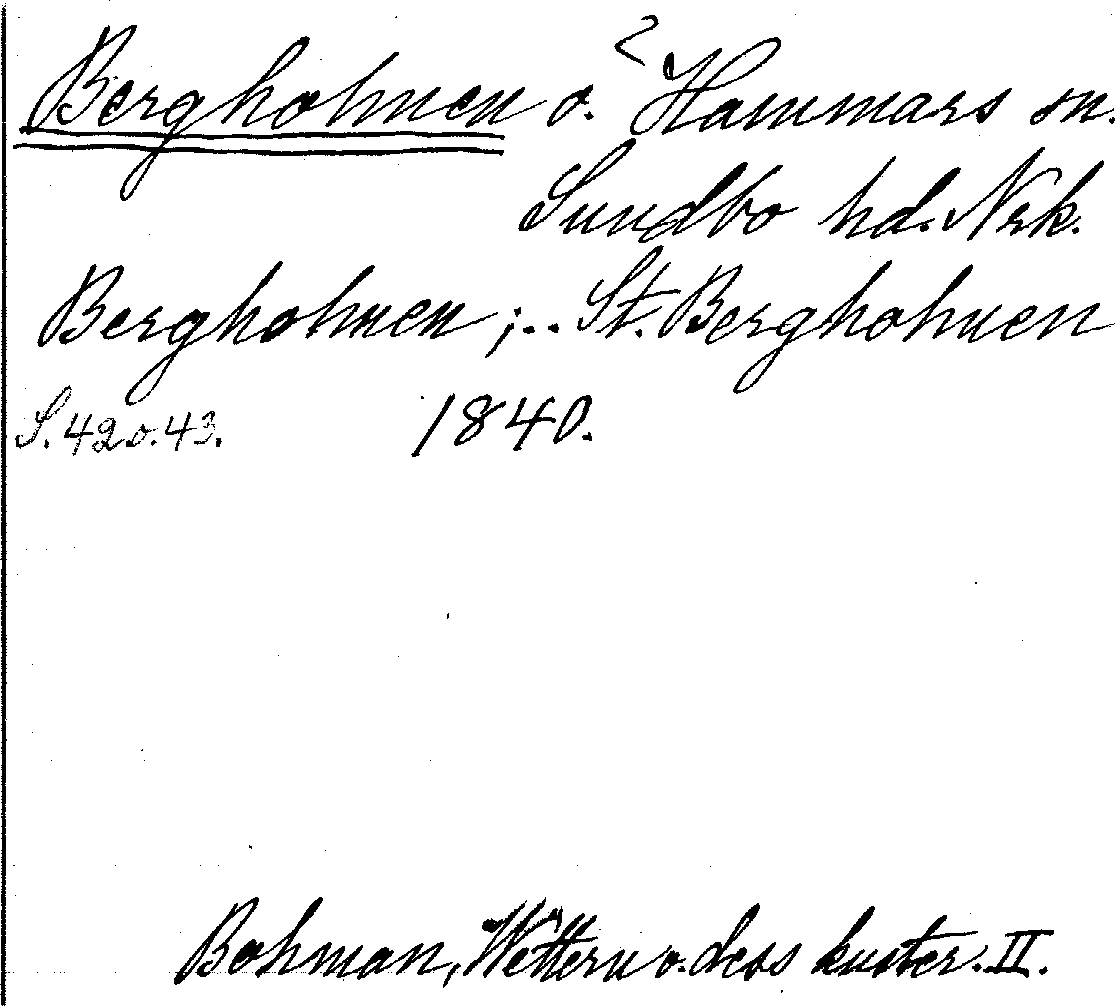 Bergholmen ö. ? Hammars sn.
Sundbo hd. Nrk.
Bergholmen ;.. St. Bergholmen
S. 42 o. 43. 1840.
Bohman, Wettern o. dess kuster. II.